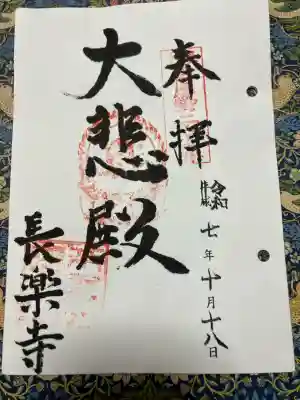 奉拝
令和
七年十月十八日
大悲殿
長楽寺